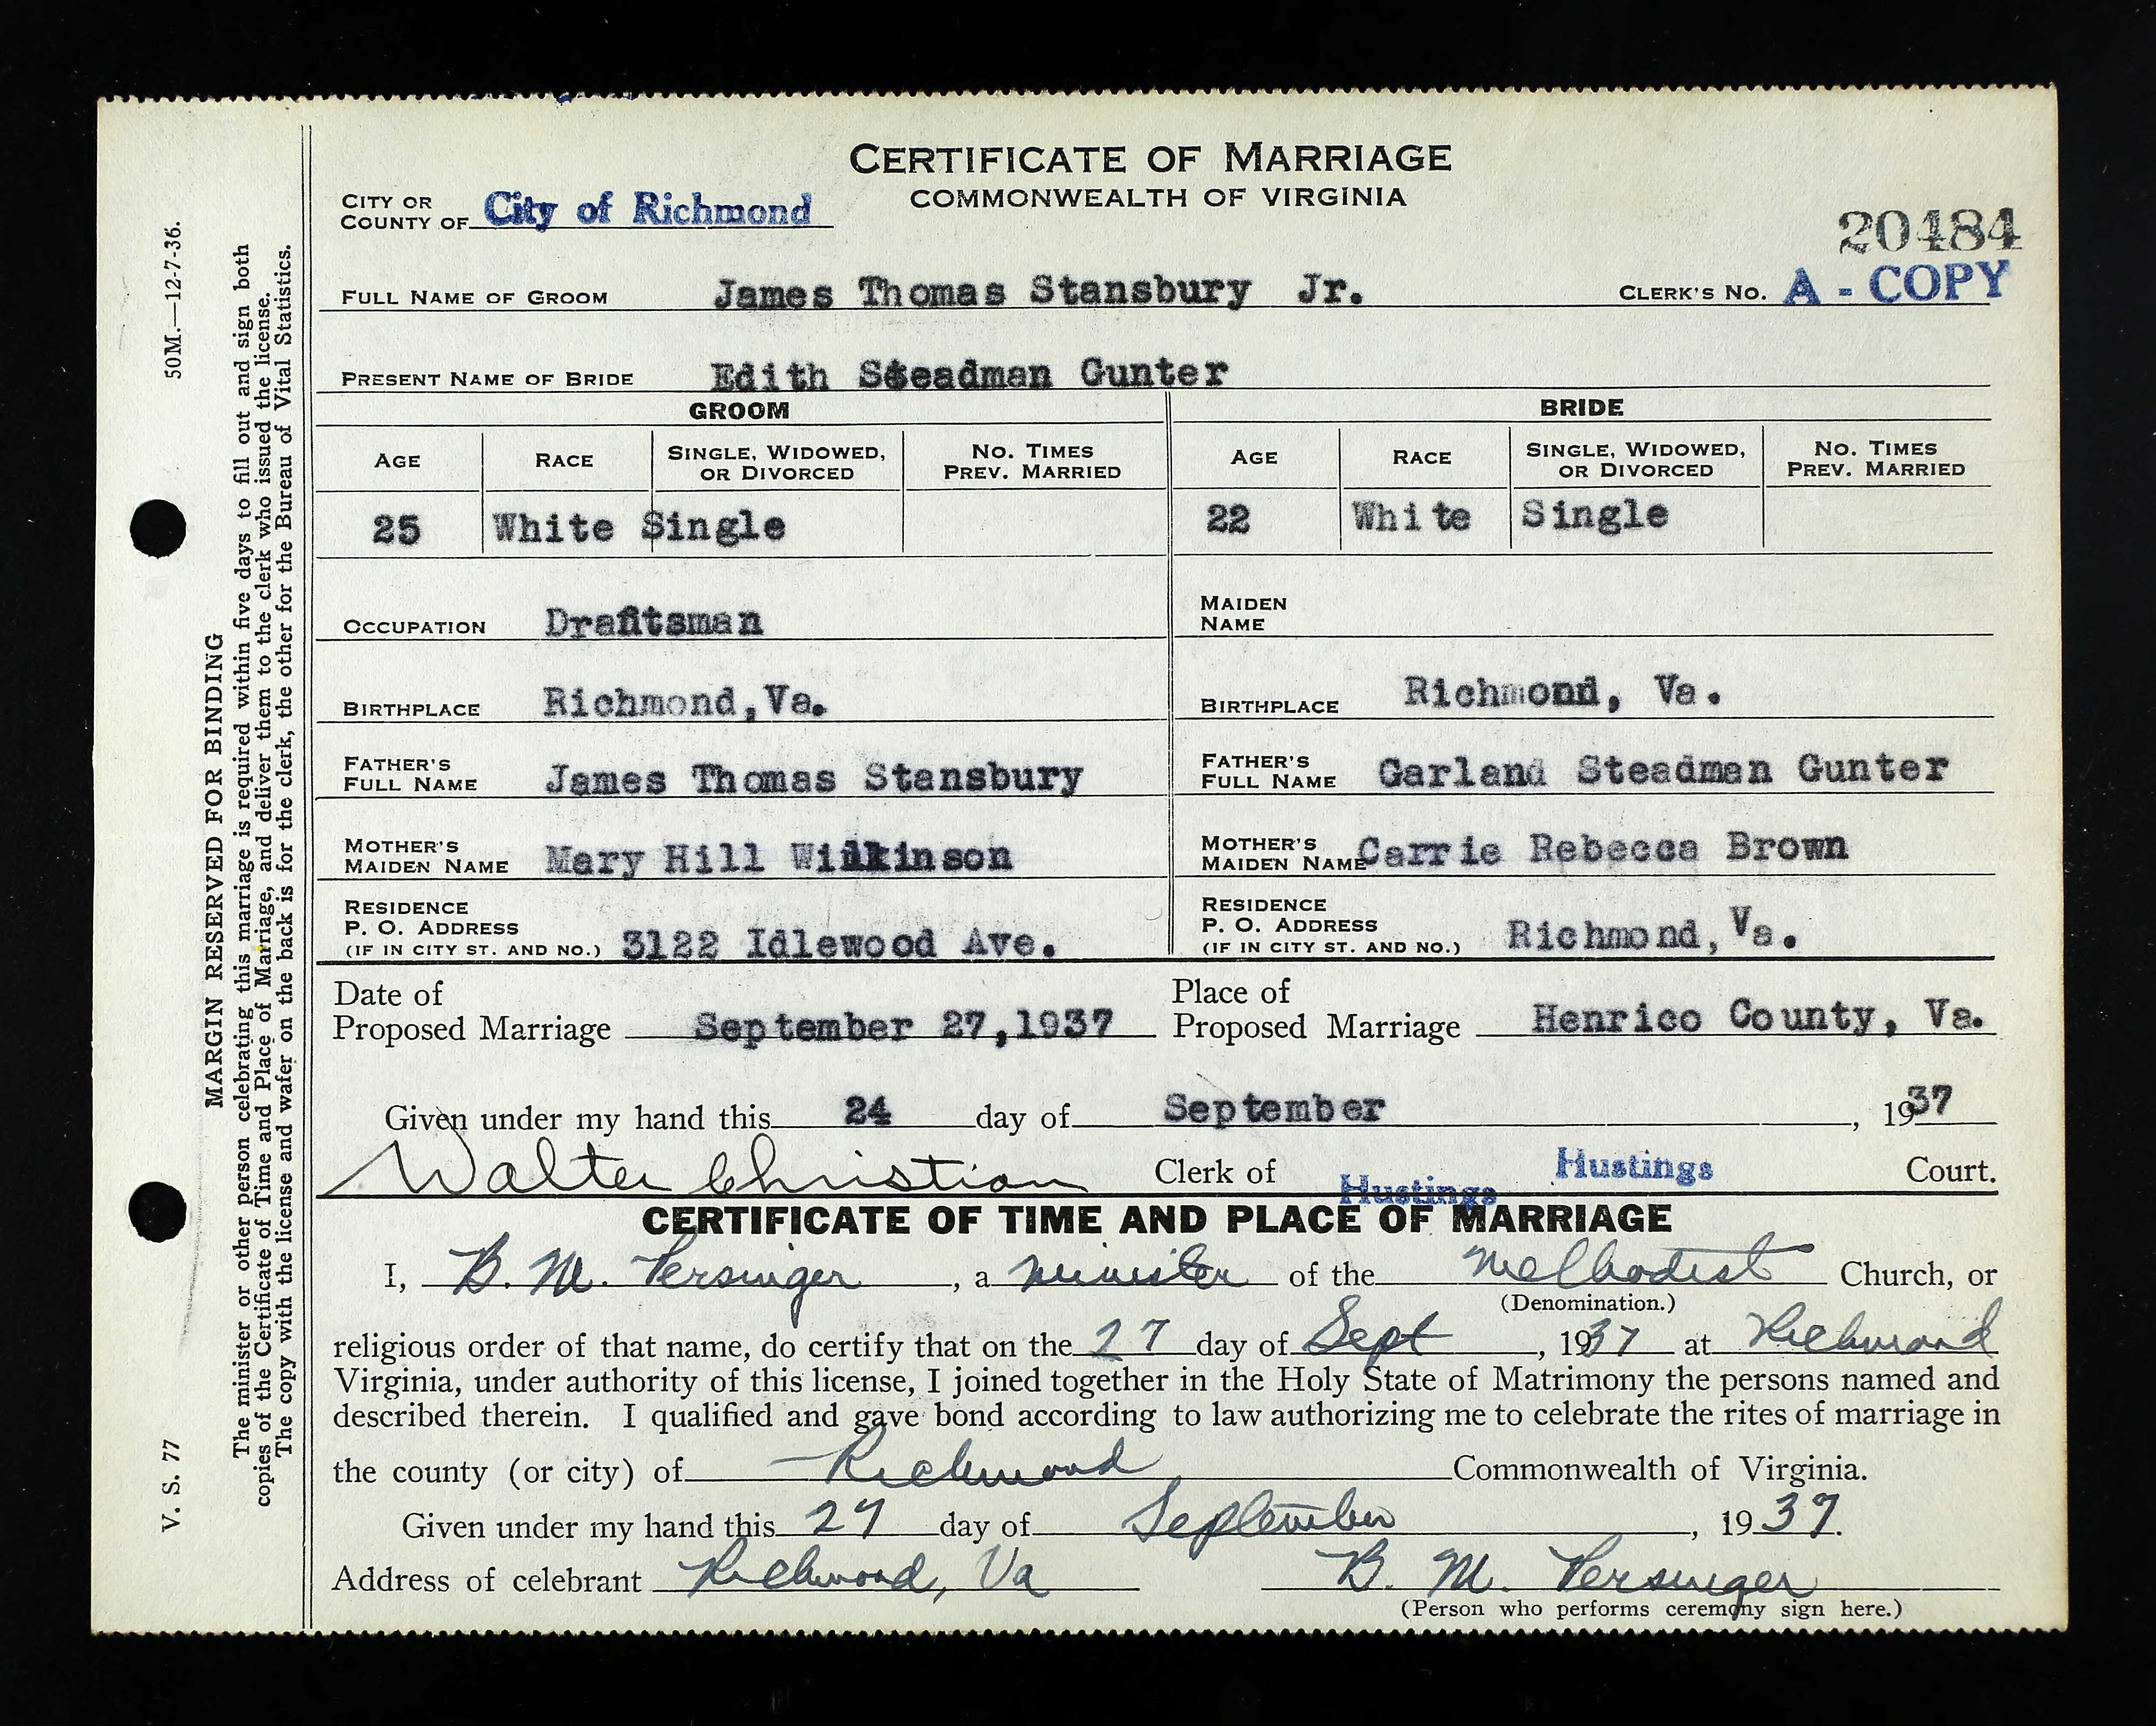 CERTIFICATE OF MARRIAGE
COMMONWEALTH OF VIRGINIA
CITY OR COUNTY OF City of Richmond
20484
FULL NAME OF GROOM James Thomas Stansbury Jr. CLERK'S NO. A - COPY
PRESENT NAME OF BRIDE Edith Steadman Gunter
GROOM BRIDE
AGE RACE SINGLE, WIDOWED, OR DIVORCED NO. TIMES PREV. MARRIED AGE RACE SINGLE, WIDOWED, OR DIVORCED NO. TIMES PREV. MARRIED
25 White Single 22 White Single
OCCUPATION Draftsman MAIDEN NAME
BIRTHPLACE Richmond, Va. BIRTHPLACE Richmond, Va.
FATHER'S FULL NAME James Thomas Stansbury FATHER'S FULL NAME Garland Steadman Gunter
MOTHER'S MAIDEN NAME Mary Hill Wilkinson MOTHER'S MAIDEN NAME Carrie Rebecca Brown
RESIDENCE P. O. ADDRESS (IF IN CITY ST. AND NO.) 3122 Idlewood Ave. RESIDENCE P. O. ADDRESS (IF IN CITY ST. AND NO.) Richmond, Va.
Date of Proposed Marriage September 27, 1937 Place of Proposed Marriage Henrico County, Va.
Given under my hand this 24 day of September, 1937
Walter Christian Clerk of Hustings Hustings Court.
CERTIFICATE OF TIME AND PLACE OF MARRIAGE
I, B. M. Persinger, a minister of the Methodist Church, or
(Denomination.)
religious order of that name, do certify that on the 27 day of Sept, 1937 at Richmond
Virginia, under authority of this license, I joined together in the Holy State of Matrimony the persons named and
described therein. I qualified and gave bond according to law authorizing me to celebrate the rites of marriage in
the county (or city) of Richmond Commonwealth of Virginia.
Given under my hand this 27 day of September, 1937.
Address of celebrant Richmond, Va B. M. Persinger
(Person who performs ceremony sign here.)
V. S. 77 50M.—12-7-36.
MARGIN RESERVED FOR BINDING
The minister or other person celebrating this marriage is required within five days to fill out and sign both
copies of the Certificate of Time and Place of Marriage, and deliver them to the clerk who issued the license.
The copy with the license and wafer on the back is for the clerk, the other for the Bureau of Vital Statistics.